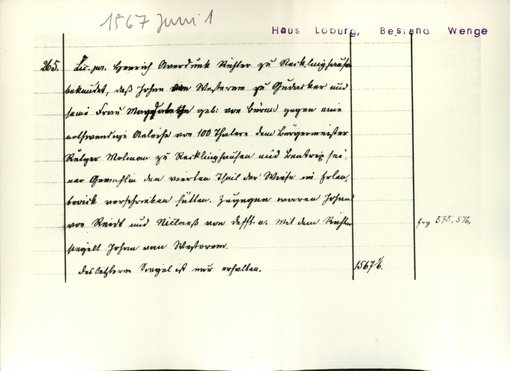 1567 Juni 1
Haus Loburg, Bestand Wenge
265. Lic. jur. Henrich Averdunk Richter zu Recklinghausen
bekundet, daß Johan von Westerem zu Gudacker und
seine Frau Magdalethe geb: von büren gegen eine
nothwendige Anleihe von 100 Thalern dem Bürgermeister
Rotger Molman zu Recklinghausen und Beatrix sei-
ner Gemahlin den vierten Theil der Wiese im Erlen
broick verschrieben hätten. Zugegen waren Johan
von Reidt und Niclaeß von Desst. a. Mit dem Richter
siegelt Johan von Westerem.
Des letztern Siegel ist nur erhalten.
1567 1/6.
frg 575, 576,